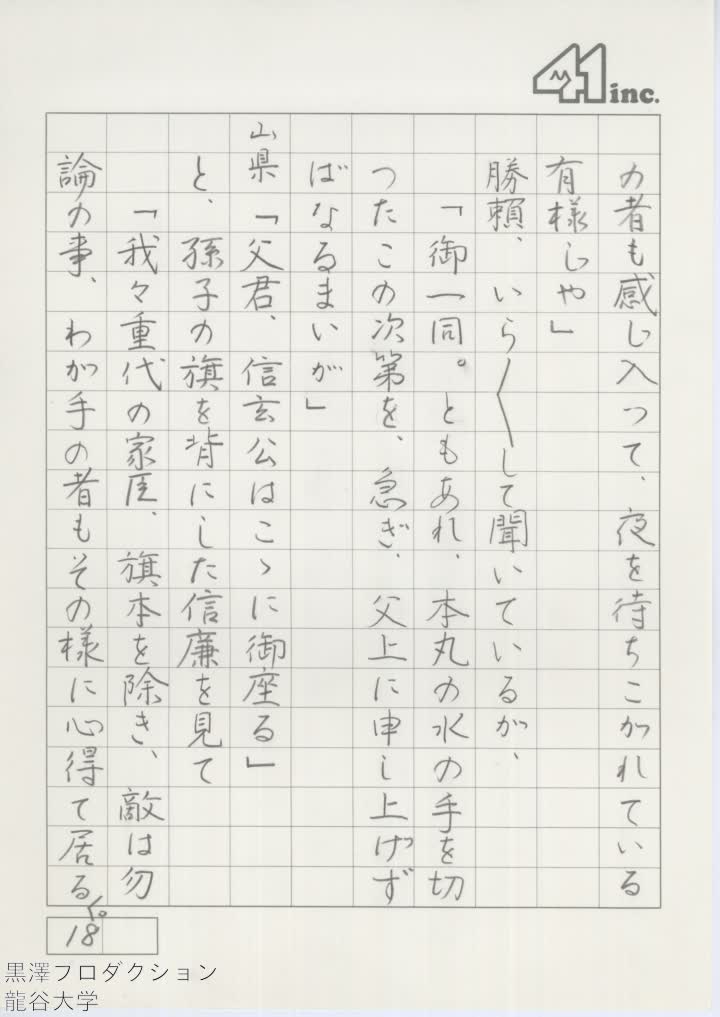 41 inc.
の者も感じ入って、夜を待ちこがれている
有様じや」
勝頼、いら〳〵して聞いているが、
「御一同。ともあれ、本丸の水の手を切
つたこの次第を、急ぎ、父上に申し上げず
ばなるまいが」
山県「父君、信玄公はこゝに御座る」
と、孫子の旗を背にした信廉を見て
「我々重代の家臣、旗本を除き、敵は勿
論の事、わが手の者もその様に心得て居る。
18
黒澤プロダクション
龍谷大学